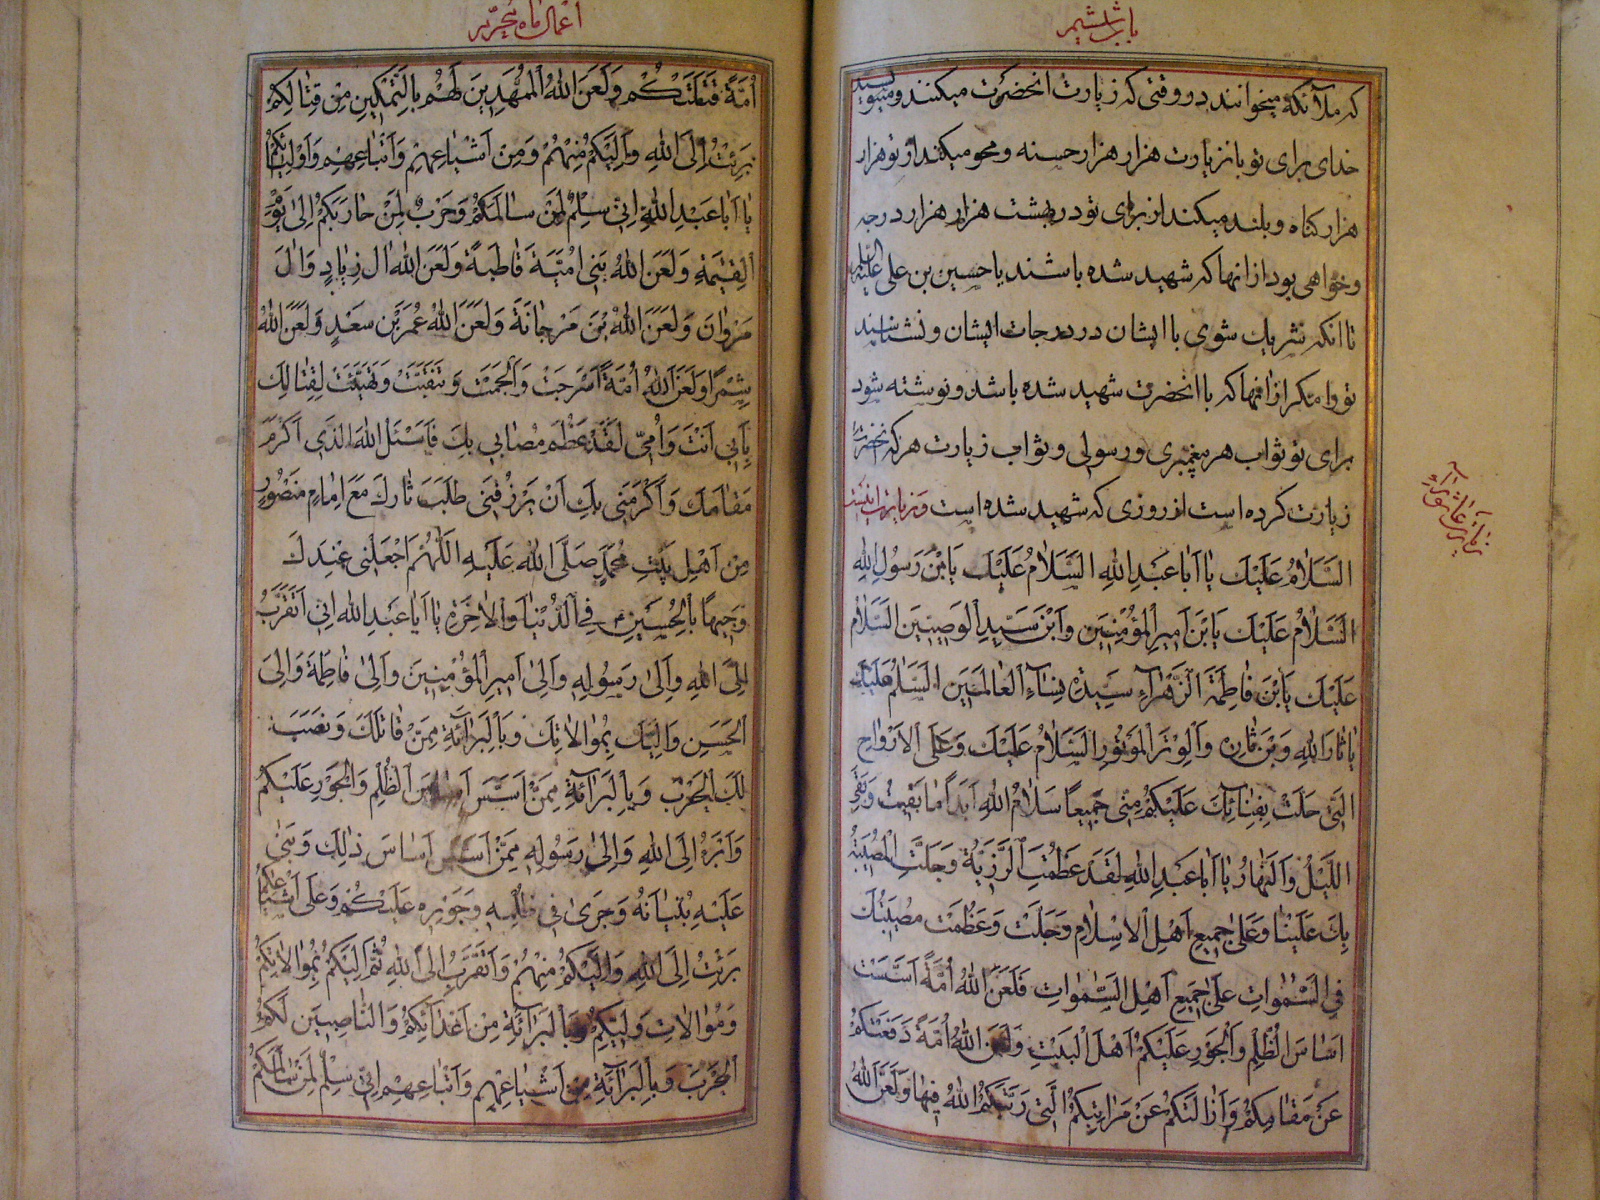 باب ششم
که ملآئکه میخوانند در وقتی که زیارت انحضرت میکنند و مینویسد
خدای برای تو باین زیارت هزار هزار حسنه و محو میکند از تو هزار
هزار کناه و بلند میکند از برای تو در بهشت هزار هزار درجه
و خواهی بود از انها که شهید شده باشند با حسین بن علی علیه السلام
تا انکه شریک شوی با ایشان در درجات ایشان و نشناسند
تو را مکر از انها که با انحضرت شهید شده باشد و نوشته شود
برای تو ثواب هر پیغمبری و رسولی و ثواب زیارت هر که انحضرت را
زیارت کرده است از روزی که شهید شده است و زیارت اینست
اَلسَّلامُ عَلَیْكَ یٰا اَبٰا عَبْدِ اللهِ اَلسَّلٰامُ عَلَیْكَ یَابْنَ رَسُولِ اللهِ
اَلسَّلٰامُ عَلَیْكَ یَابْنَ اَمیرِ الْمُؤْمِنینَ وَابْنَ سَیِّدِ الْوَصِیّینَ اَلسَّلٰامُ
عَلَیْكَ یَابْنَ فٰاطِمَةَ الزَّهْرٰآءِ سَیِّدَةِ نِسٰآءِ الْعٰالَمینَ اَلسَّلٰمُ عَلَیْكَ
یٰا ثٰارَ اللهِ وَبْنَ ثٰارِهِ وَالْوِتْرَ الْمَوْتُورَ اَلسَّلٰامُ عَلَیْكَ وَعَلَی الْاَرْوٰاحِ
الَّتی حَلَّتْ بِفِنٰآئِكَ عَلَیْكُمْ مِنّی جَمیعًا سَلٰامُ اللهِ اَبَداً مٰا بَقیتُ وَبَقِیَ
اللَّیْلُ وَالنَّهٰارُ یٰا اَبٰا عَبْدِ اللهِ لَقَدْ عَظُمَتِ الرَّزِیَّةُ وَجَلَّتِ الْمُصیبَةُ
بِكَ عَلَیْنٰا وَعَلیٰ جَمیعِ اَهْلِ الْاِسْلٰامِ وَجَلَّتْ وَعَظُمَتْ مُصیبَتُكَ
فِی السَّمٰوٰاتِ عَلیٰ جَمیعِ اَهْلِ السَّمٰوٰاتِ فَلَعَنَ اللهُ اُمَّةً اَسَّسَتْ
اَسٰاسَ الظُّلْمِ وَالْجَوْرِ عَلَیْكُمْ اَهْلَ الْبَیْتِ وَلَعَنَ اللهُ اُمَّةً دَفَعَتْكُمْ
عَنْ مَقٰامِكُمْ وَاَزٰالَتْكُمْ عَنْ مَرٰاتِبِكُمُ الَّتی رَتَّبَكُمُ اللهُ فیهٰا وَلَعَنَ اللهُ
زیارت عاشورآء
اعمال ماه محرّم
اُمَّةً قَتَلَتْكُمْ وَلَعَنَ اللهُ الْمُمَهِّدینَ لَهُمْ بِالتَّمْكینِ مِنْ قِتٰالِكُمْ
بَرِئْتُ اِلَی اللهِ وَاِلَیْكُمْ مِنْهُمْ وَمِنْ اَشْیٰاعِهِمْ وَاَتْبٰاعِهِمْ وَاَوْلِیٰائِهِمْ
یٰا اَبٰا عَبْدِ اللهِ اِنّی سِلْمٌ لِمَنْ سٰالَمَكُمْ وَحَرْبٌ لِمَنْ حٰارَبَكُمْ اِلیٰ یَوْمِ
الْقِیٰمَةِ وَلَعَنَ اللهُ بَنی اُمَیَّةَ قٰاطِبَةً وَلَعَنَ اللهُ اٰلَ زِیٰادٍ وَاٰلَ
مَرْوٰانَ وَلَعَنَ اللهُ بْنَ مَرْجٰانَةَ وَلَعَنَ اللهُ عُمَرَ بْنَ سَعْدٍ وَلَعَنَ اللهُ
شِمْرًا وَلَعَنَ اللهُ اُمَّةً اَسْرَجَتْ وَاَلْجَمَتْ وَتَنَقَّبَتْ وَتَهَیَّئَتْ لِقِتٰالِكَ
بِاَبی اَنْتَ وَاُمّی لَقَدْ عَظُمَ مُصٰابی بِكَ فَاَسْئَلُ اللهَ الَّذی اَكْرَمَ
مَقٰامَكَ وَاَكْرَمَنی بِكَ اَنْ یَرْزُقَنی طَلَبَ ثٰارِكَ مَعَ اِمٰامٍ مَنْصُورٍ
مِنْ اَهْلِ بَیْتِ مُحَمَّدٍ صَلَّی اللهُ عَلَیْهِ اَللّٰهُمَّ اجْعَلْنی عِنْدَكَ
وَجیهًا بِالْحُسَیْنِ فِی الدُّنْیٰا وَالْاٰخِرَةِ یٰا اَبٰا عَبْدِ اللهِ اِنّی اَتَقَرَّبُ
اِلَی اللهِ وَاِلیٰ رَسُولِهِ وَاِلیٰ اَمیرِ الْمُؤْمِنینَ وَاِلیٰ فٰاطِمَةَ وَاِلَی
الْحَسَنِ وَاِلَیْكَ بِمُوٰالٰاتِكَ وَبِالْبَرٰآئَةِ مِمَّنْ قٰاتَلَكَ وَنَصَبَ
لَكَ الْحَرْبَ وَبِالْبَرٰآئَةِ مِمَّنْ اَسَّسَ اَسٰاسَ الظُّلْمِ وَالْجَوْرِ عَلَیْكُمْ
وَاَبْرَءُ اِلَی اللهِ وَاِلیٰ رَسُولِهِ مِمَّنْ اَسَّسَ اَسٰاسَ ذٰلِكَ وَبَنیٰ
عَلَیْهِ بُنْیٰانَهُ وَجَریٰ فی ظُلْمِهِ وَجَوْرِهِ عَلَیْكُمْ وَعَلیٰ اَشْیٰاعِكُمْ
بَرِئْتُ اِلَی اللهِ وَاِلَیْكُمْ مِنْهُمْ وَاَتَقَرَّبُ اِلَی اللهِ ثُمَّ اِلَیْكُمْ بِمُوٰالٰاتِكُمْ
وَمُوٰالٰاتِ وَلِیِّكُمْ وَبِالْبَرٰآئَةِ مِنْ اَعْدٰآئِكُمْ وَالنّٰاصِبینَ لَكُمُ
الْحَرْبَ وَبِالْبَرٰآئَةِ مِنْ اَشْیٰاعِهِمْ وَاَتْبٰاعِهِمْ اِنّی سِلْمٌ لِمَنْ سٰالَمَكُمْ